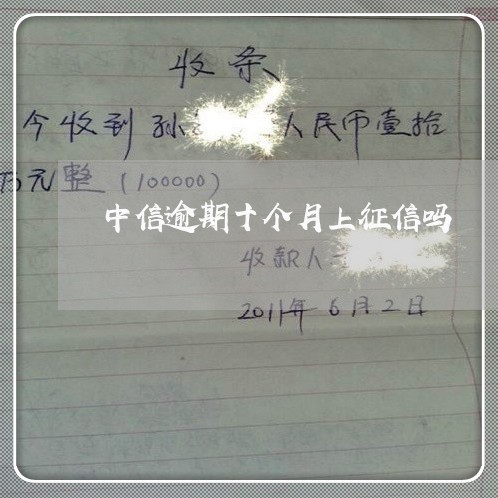 收条
今收到孙 人民币壹拾
万元整(100000)
中信逾期十个月上征信吗
收款人
2011年6月2日